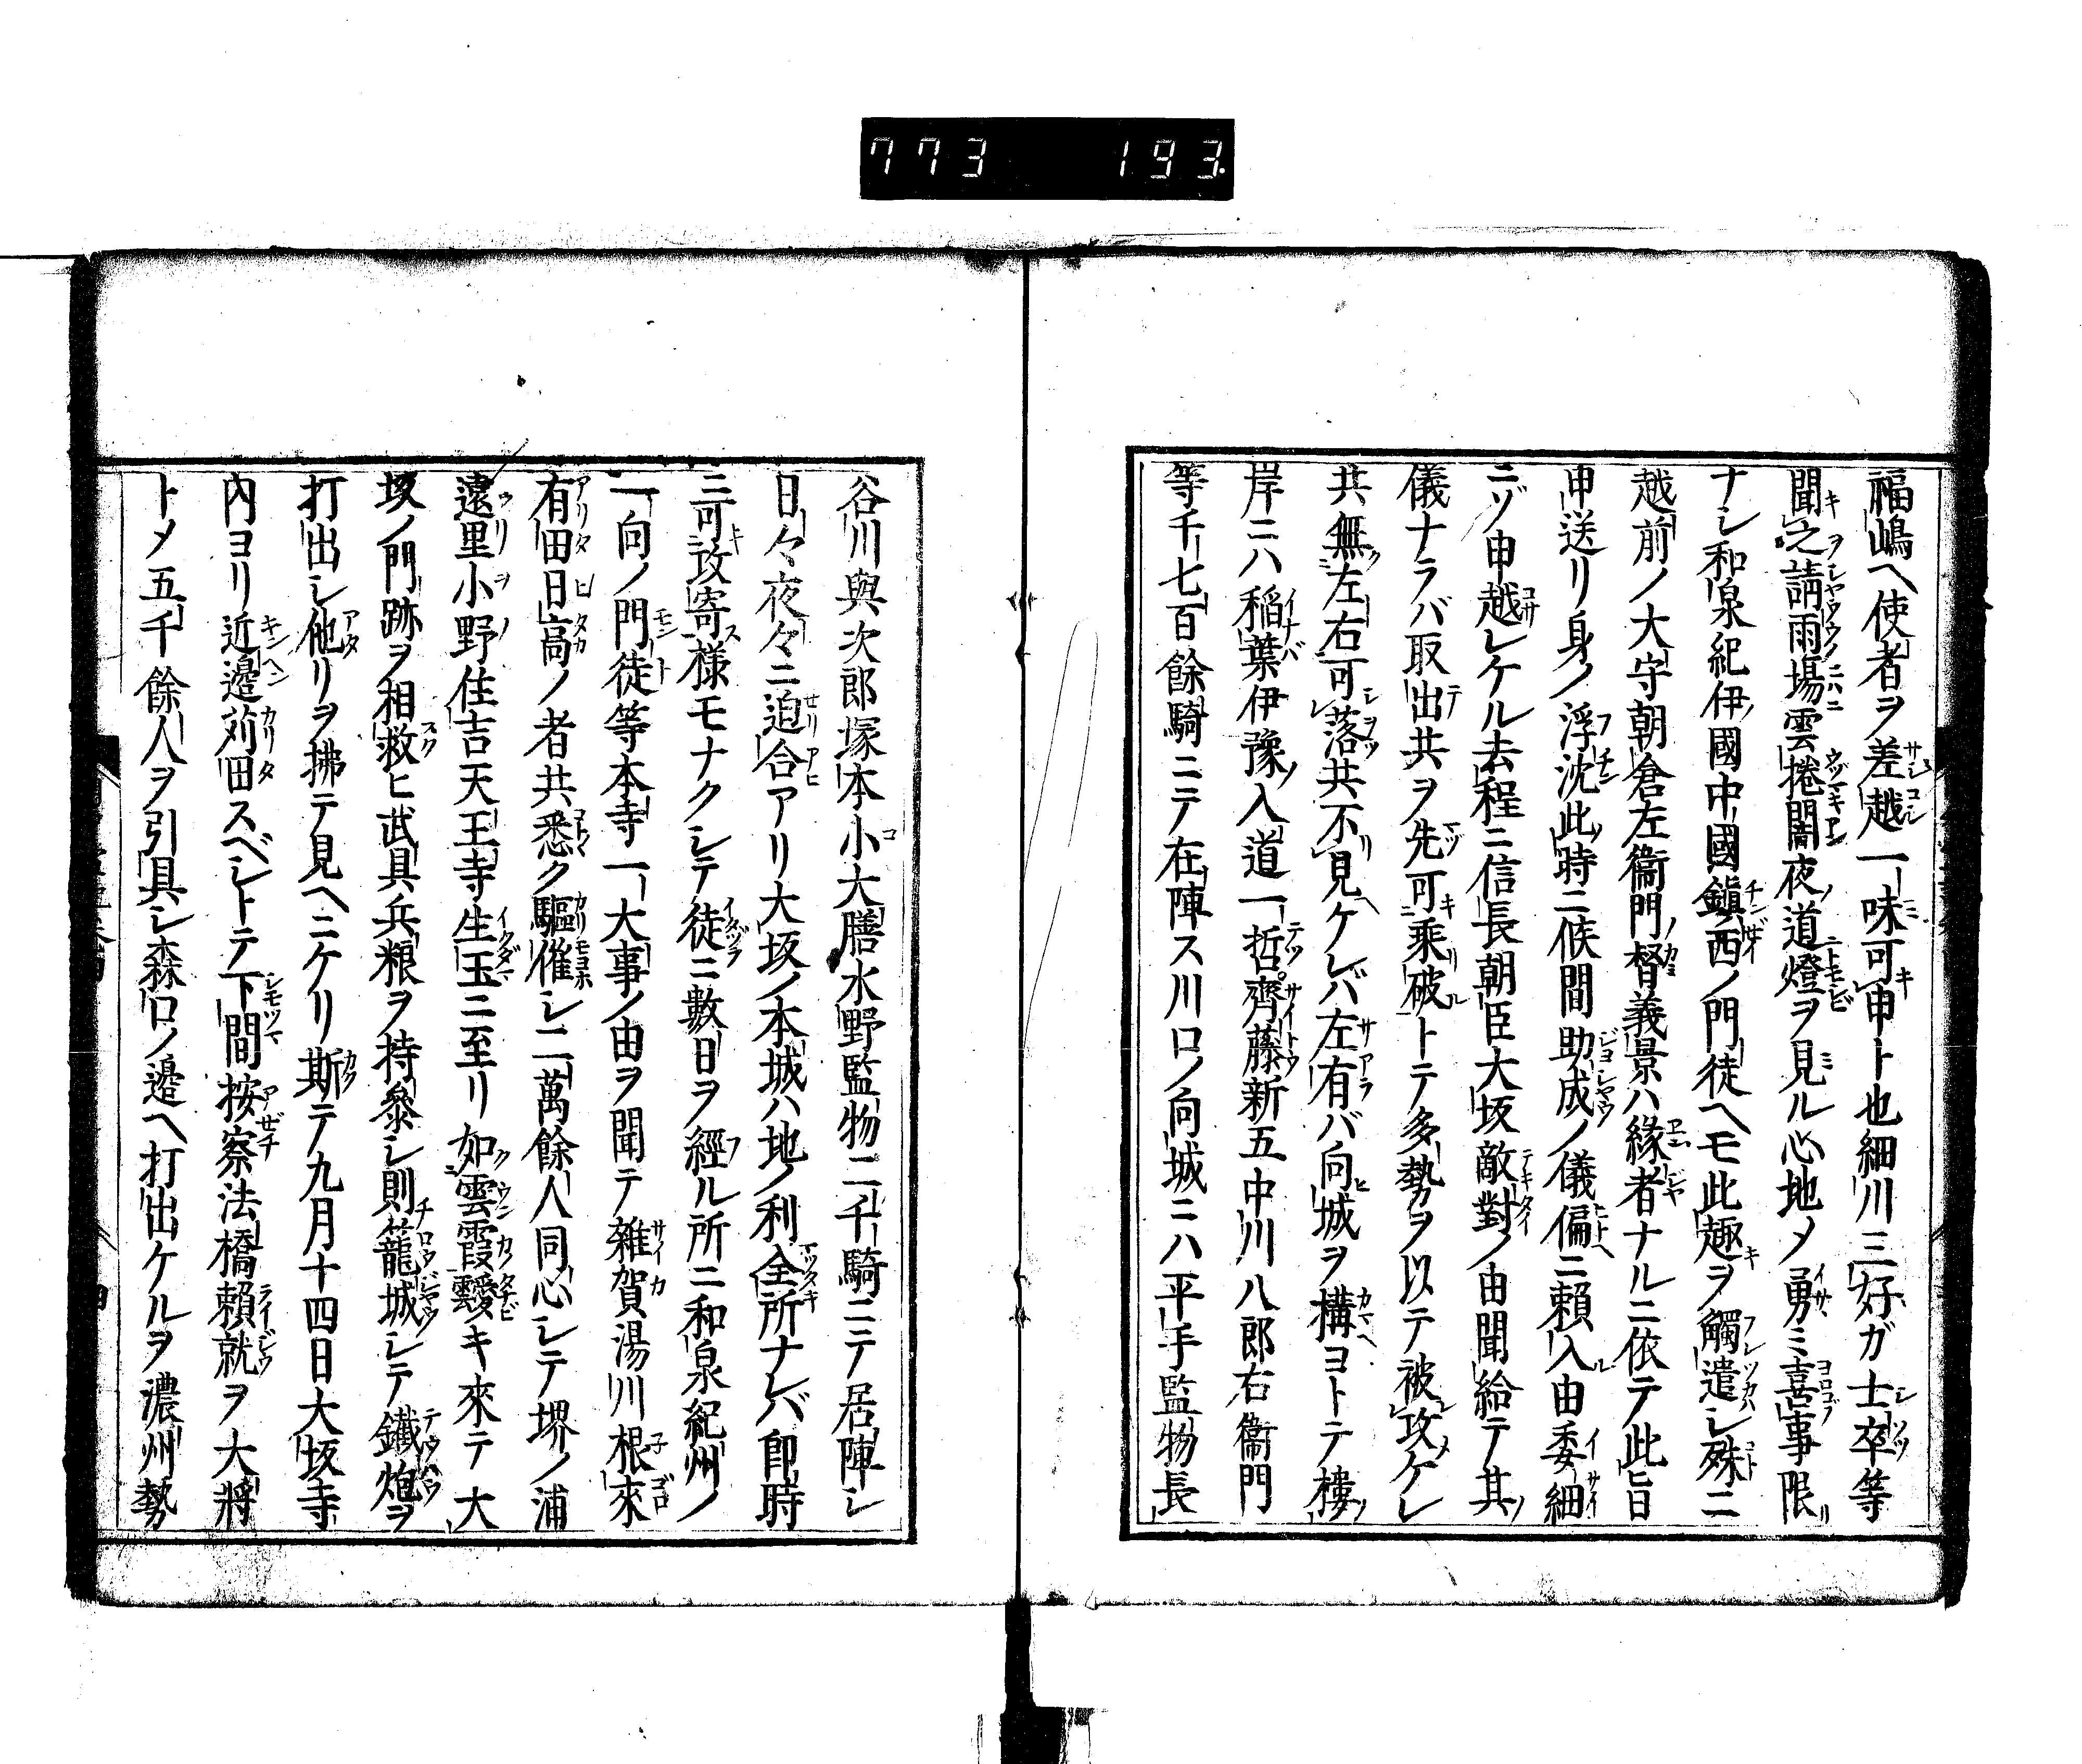 773 193.
福嶋ヘ使者ヲ差越一味可申ト也細川三好ガ士卒等
聞之請雨場雲捲闇夜道燈ヲ見ル心地メ勇ミ喜事限
ナシ和泉紀伊國中國鎭西ノ門徒ヘモ此趣ヲ觸遣シ殊ニ
越前ノ大守朝倉左衞門督義景ハ緣者ナルニ依テ此旨
申送リ身ノ浮沈此時ニ候間助成ノ儀偏ニ賴入由委細
ニゾ申越シケル去程ニ信長朝臣大坂敵對ノ由聞給テ其
儀ナラバ取出共ヲ先可乘破トテ多勢ヲ以テ被攻ケレ
共無左右可落共不見ケレバ左有バ向城ヲ構ヨトテ樓
岸ニハ稻葉伊豫入道一哲齊藤新五中川八郎右衞門
等千七百餘騎ニテ在陣ス川口ノ向城ニハ平手監物長
谷川與次郎塚本小大膳水野監物二千騎ニテ居陣シ
日々夜々ニ迫合アリ大坂ノ本城ハ地ノ利全所ナレバ卽時
ニ可攻寄樣モナクシテ徒ニ數日ヲ經ル所ニ和泉紀州ノ
一向ノ門徒等本寺一大事ノ由ヲ聞テ雜賀湯川根來
有田日高ノ者共悉ク驅催シ二萬餘人同心シテ堺ノ浦
遠里小野住吉天王寺生玉ニ至リ如雲霞靉キ來テ大
坂ノ門跡ヲ相救ヒ武具兵粮ヲ持參シ則籠城シテ鐵炮ヲ
打出シ他リヲ拂テ見ヘニケリ斯テ九月十四日大坂寺
內ヨリ近邊苅田スベシトテ下間按察法橋賴就ヲ大將
トメ五千餘人ヲ引具シ森口ノ邊ヘ打出ケルヲ濃州勢